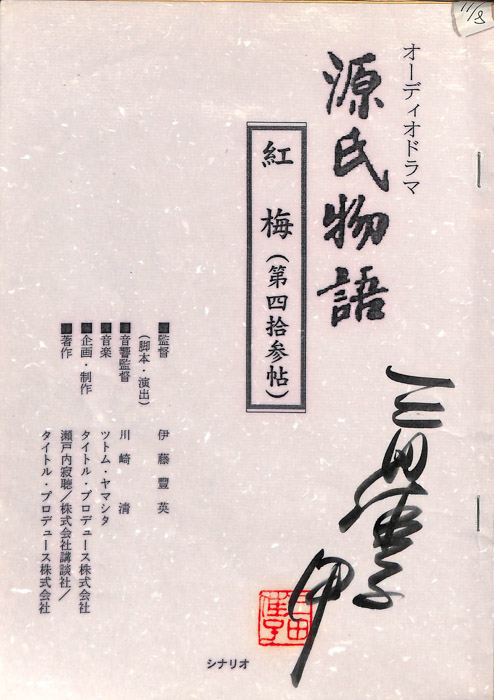 11/8
オーディオドラマ
源氏物語
紅梅(第四拾参帖)
■監督 伊藤豐英
(脚本・演出)
■音響監督 川崎清
■音楽 ツトム・ヤマシタ
■企画・制作 タイトル・プロデュース株式会社
■著作 瀬戸内寂聴/株式会社講談社/
タイトル・プロデュース株式会社
シナリオ